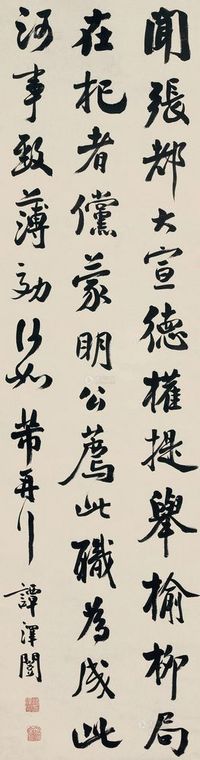 聞張都大宣德權提舉榆柳局
在杞者儻蒙明公薦此職為成此
河事致薄效何如芾再行
譚澤闓